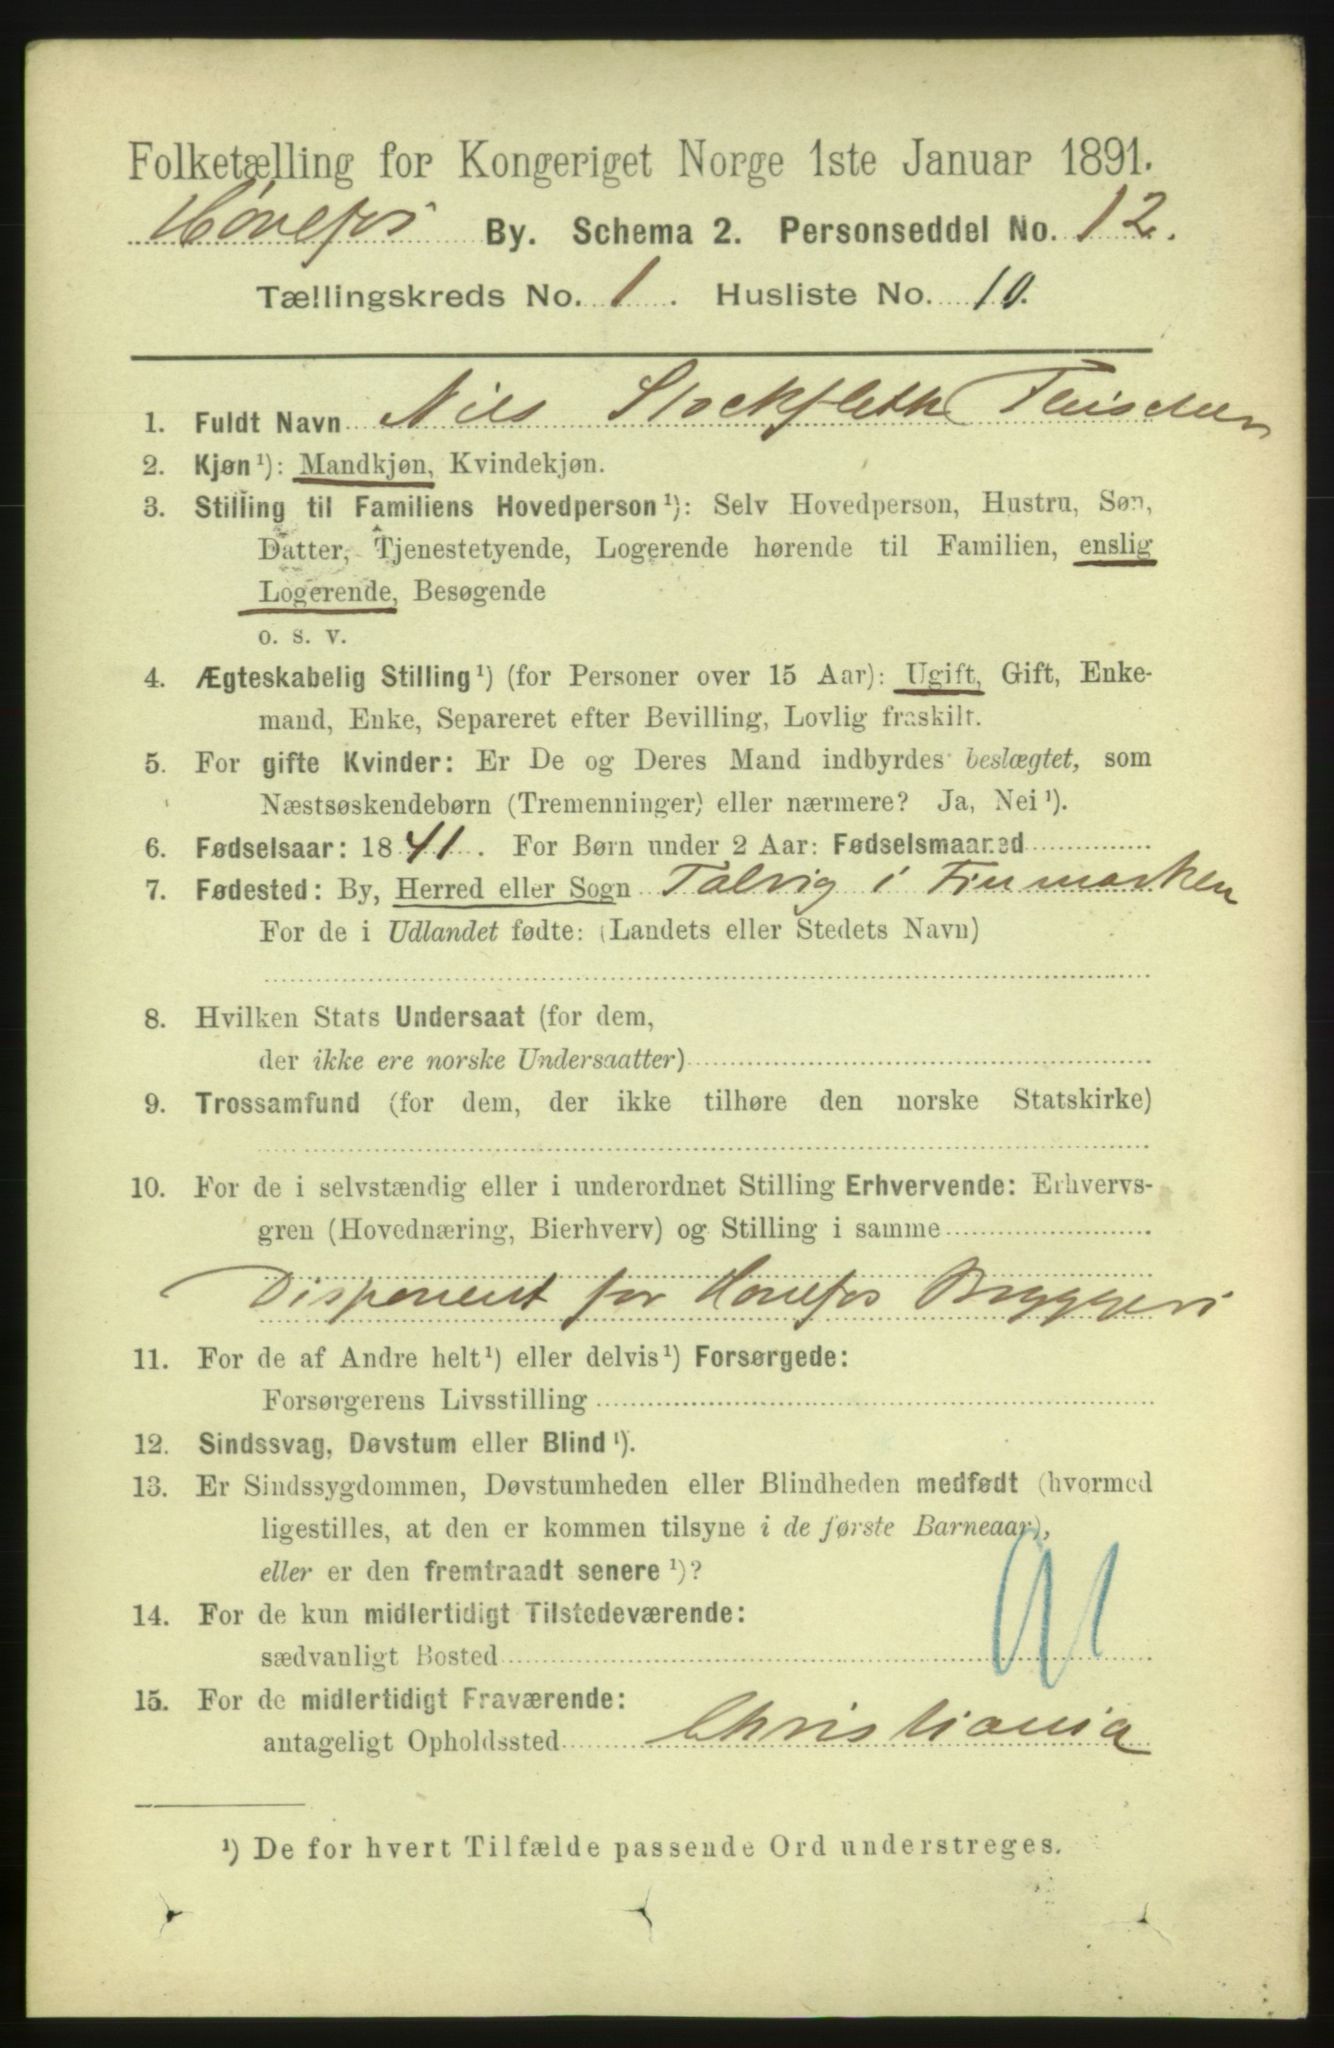 Folketælling for Kongeriget Norge 1ste Januar 1891.
Hønefos By. Schema 2. Personseddel No. 12.
Tællingskreds No. 1. Husliste No. 10.
1. Fuldt Navn Nils Stockfleth Fleischer
2. Kjøn¹): Mandkjøn, Kvindekjøn.
3. Stilling til Familiens Hovedperson¹): Selv Hovedperson, Hustru, Søn,
Datter, Tjenestetyende, Logerende hørende til Familien, enslig
Logerende, Besøgende
o. s. v.
4. Ægteskabelig Stilling¹) (for Personer over 15 Aar): Ugift, Gift, Enke-
mand, Enke, Separeret efter Bevilling, Lovlig fraskilt.
5. For gifte Kvinder: Er De og Deres Mand indbyrdes beslægtet, som
Næstsøskendebørn (Tremenninger) eller nærmere? Ja, Nei¹).
6. Fødselsaar: 1841. For Børn under 2 Aar: Fødselsmaaned
7. Fødested: By, Herred eller Sogn Talvig i Finmarken
For de i Udlandet fødte: (Landets eller Stedets Navn)
8. Hvilken Stats Undersaat (for dem,
der ikke ere norske Undersaatter)
9. Trossamfund (for dem, der ikke tilhøre den norske Statskirke)
10. For de i selvstændig eller i underordnet Stilling Erhvervende: Erhvervs-
gren (Hovednæring, Bierhverv) og Stilling i samme
Disponent for Hønefos Bryggeri
11. For de af Andre helt¹) eller delvis¹) Forsørgede:
Forsørgerens Livsstilling
12. Sindssvag, Døvstum eller Blind¹).
13. Er Sindssygdommen, Døvstumheden eller Blindheden medfødt (hvormed
ligestilles, at den er kommen tilsyne i de første Barneaar),
eller er den fremtraadt senere¹)?
14. For de kun midlertidigt Tilstedeværende:
sædvanligt Bosted
15. For de midlertidigt Fraværende:
antageligt Opholdssted Christiania
¹) De for hvert Tilfælde passende Ord understreges.